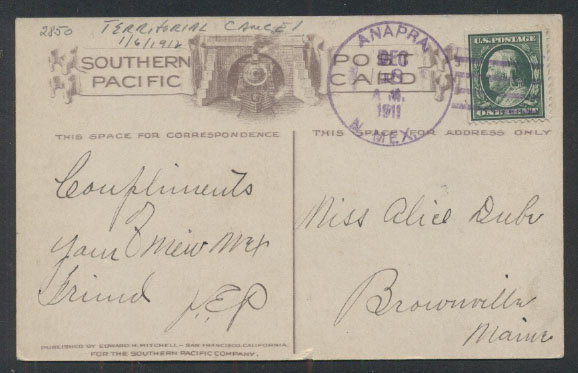 2850 TERRITORIAL CANCEL
1/6/1912
SOUTHERN PACIFIC
POST CARD
ANAPRA,
DEC
A.M.
1911
N. MEX.
U.S. POSTAGE
ONE CENT
THIS SPACE FOR CORRESPONDENCE
THIS SPACE FOR ADDRESS ONLY
Compliments
of
your New Mex
Friend
Miss Alice Dube
Brownville
Maine
PUBLISHED BY EDWARD H. MITCHELL – SAN FRANCISCO, CALIFORNIA.
FOR THE SOUTHERN PACIFIC COMPANY.